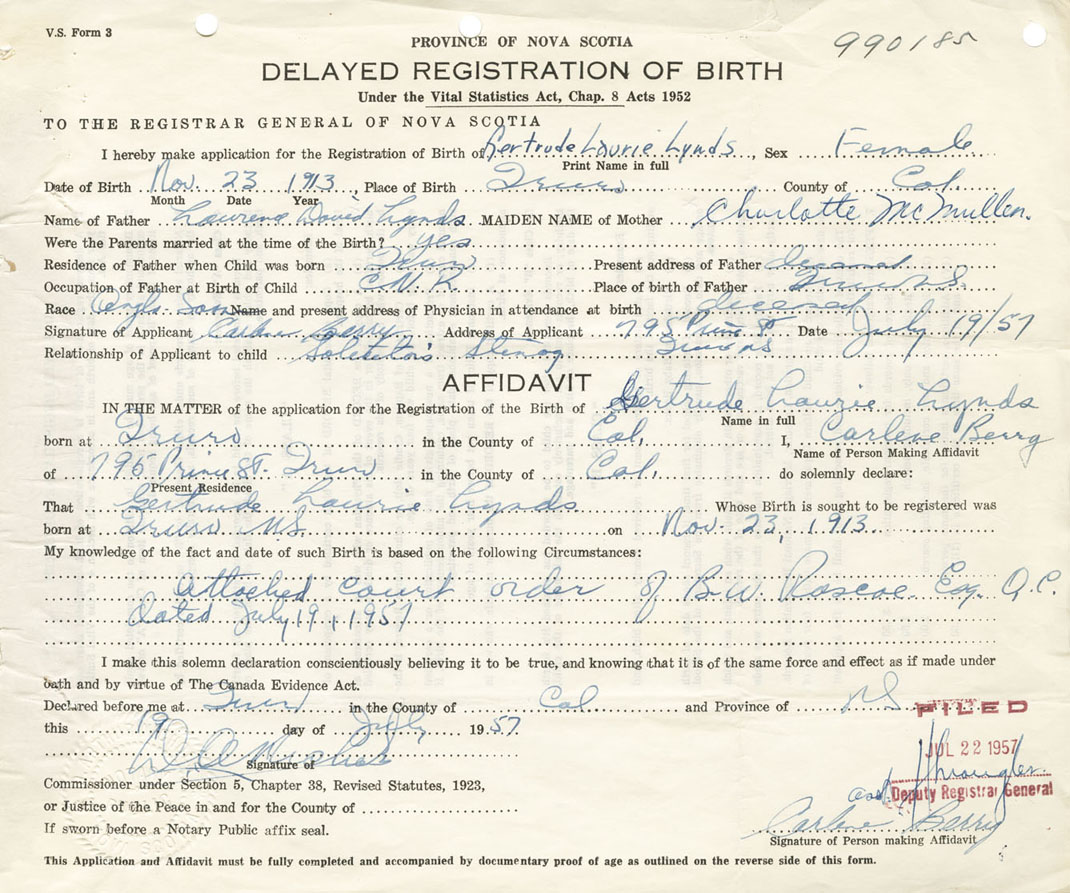 V.S. Form 3
PROVINCE OF NOVA SCOTIA
990185
DELAYED REGISTRATION OF BIRTH
Under the Vital Statistics Act, Chap. 8 Acts 1952
TO THE REGISTRAR GENERAL OF NOVA SCOTIA
I hereby make application for the Registration of Birth of Gertrude Laurie Lynds, Sex Female
Print Name in full
Date of Birth Nov. 23 1913, Place of Birth Truro County of Col.
Month Date Year
Name of Father David Lynds MAIDEN NAME of Mother Charlotte McMullen.
Were the Parents married at the time of the Birth? yes
Residence of Father when Child was born Truro Present address of Father deceased
Occupation of Father at Birth of Child C.N.R. Place of birth of Father Truro N.S.
Race Anglo Saxon Name and present address of Physician in attendance at birth deceased
Signature of Applicant Carlene Berry Address of Applicant 795 Prince St Date July 19/57
Relationship of Applicant to child Solicitor's Stenog Truro NS
AFFIDAVIT
IN THE MATTER of the application for the Registration of the Birth of Gertrude Laurie Lynds
Name in full
born at Truro in the County of Col. I, Carlene Berry
Name of Person Making Affidavit
of 795 Prince St. Truro in the County of Col. do solemnly declare:
Present Residence
That Gertrude Laurie Lynds Whose Birth is sought to be registered was
born at Truro N.S. on Nov. 23, 1913.
My knowledge of the fact and date of such Birth is based on the following Circumstances:
attached court order of B.W. Roscoe Esq. Q.C.
Dated July 19, 1957
I make this solemn declaration conscientiously believing it to be true, and knowing that it is of the same force and effect as if made under
oath and by virtue of The Canada Evidence Act.
Declared before me at Truro in the County of Col. and Province of NS
FILED
this 19 day of July, 1957.
JUL 22 1957
Signature of
Commissioner under Section 5, Chapter 38, Revised Statutes, 1923,
Deputy Registrar General
or Justice of the Peace in and for the County of
Carlene Berry
If sworn before a Notary Public affix seal.
Signature of Person making Affidavit
This Application and Affidavit must be fully completed and accompanied by documentary proof of age as outlined on the reverse side of this form.